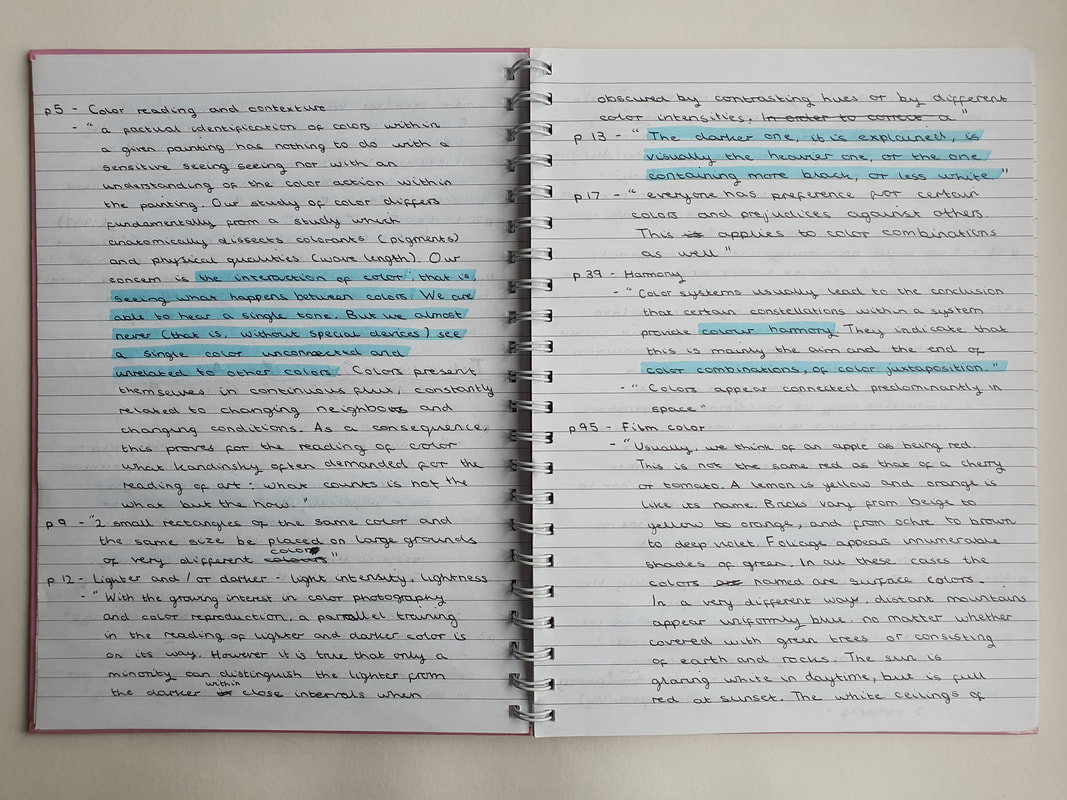 p5 - Color reading and contexture
- " a factual identification of colors within
a given painting has nothing to do with a
sensitive seeing seeing nor with an
understanding of the color action within
the painting. Our study of color differs
fundamentally from a study which
anatomically dissects colorants (pigments)
and physical qualities (wave length). Our
concern is the interaction of color; that is,
seeing what happens between colors. We are
able to hear a single tone. But we almost
never (that is, without special devices) see
a single color unconnected and
unrelated to other colors. Colors present
themselves in continuous flux, constantly
related to changing neighbours and
changing conditions. As a consequence,
this proves for the reading of color
what Kandinsky often demanded for the
reading of art: what counts is not the
what but the how. "
p9 - "2 small rectangles of the same color and
the same size be placed on large grounds
of very different colors "
p12 - Lighter and / or darker - light intensity, lightness
- " With the growing interest in color photography
and color reproduction, a parallel training
in the reading of lighter and darker color is
on its way. However it is true that only a
minority can distinguish the lighter from
the darker within close intervals when
obscured by contrasting hues or by different
color intensities. In order to correct a "
p 13 - " The darker one, it is explained, is
visually the heavier one, or the one
containing more black, or less white "
p 17 - " everyone has preference for certain
colors and prejudices against others.
This applies to color combinations
as well "
p 39 - Harmony
- " Color systems usually lead to the conclusion
that certain constellations within a system
provide colour harmony. They indicate that
this is mainly the aim and the end of
color combinations, of color juxtaposition. "
- " Colors appear connected predominantly in
space "
p45 - Film color
- " Usually, we think of an apple as being red.
This is not the same red as that of a cherry
or tomato. A lemon is yellow and orange is
like its name. Bricks vary from beige to
yellow to orange, and from ochre to brown
to deep violet. Foliage appears innumerable
shades of green. In all these cases the
colors named are surface colors.
In a very different way, distant mountains
appear uniformly blue, no matter whether
covered with green trees or consisting
of earth and rocks. The sun is
glaring white in daytime, but is full
red at sunset. The white ceilings of